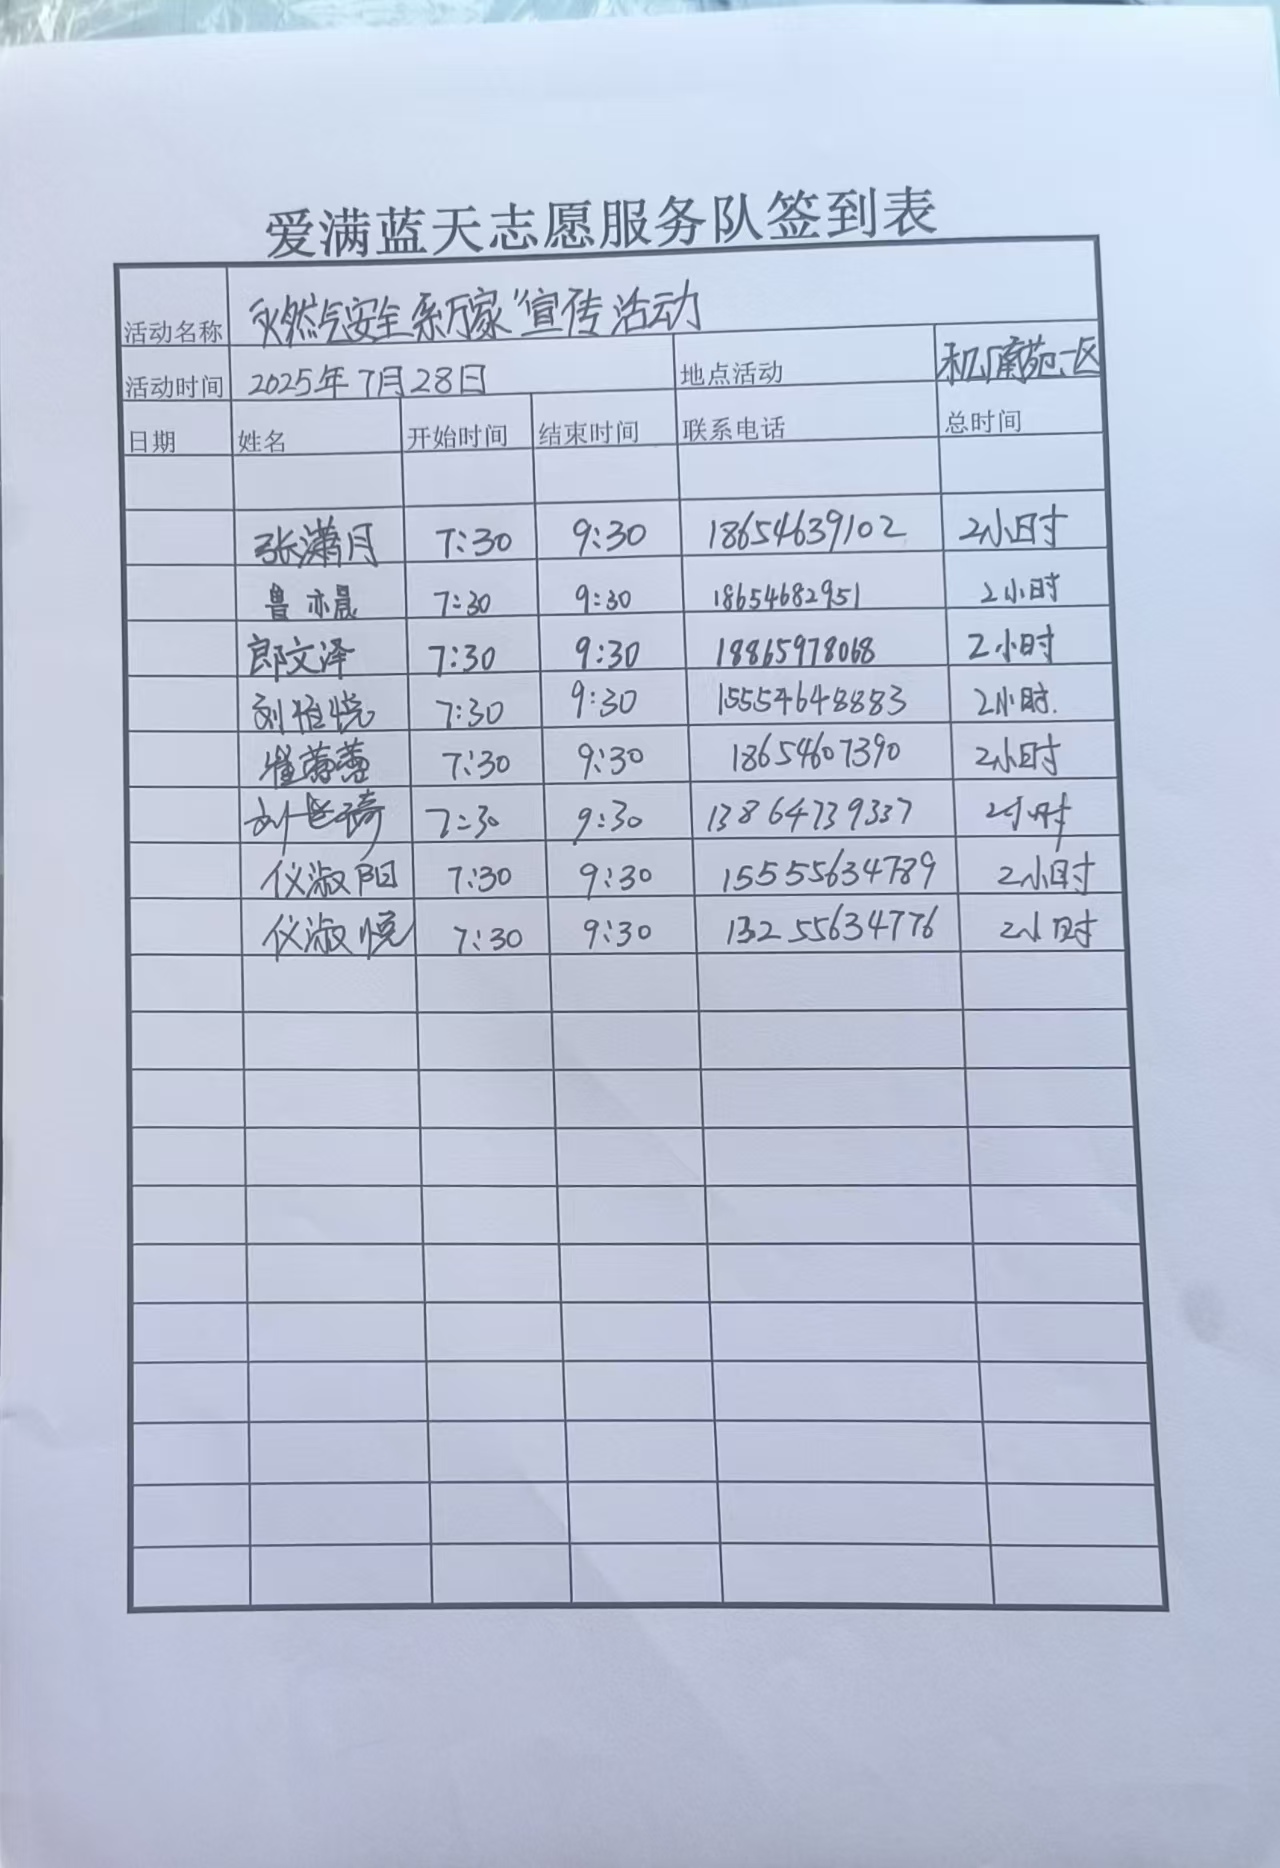 爱满蓝天志愿服务队签到表
活动名称 "燃气安全系万家"宣传活动
活动时间 2025年7月28日 地点活动 南苑一区
日期 姓名 开始时间 结束时间 联系电话 总时间
张潇月 7:30 9:30 18654639102 2小时
鲁亦晨 7:30 9:30 18654682951 2小时
郎文泽 7:30 9:30 18865978068 2小时
刘怡悦 7:30 9:30 15554648883 2小时.
崔 7:30 9:30 18654607390 2小时
刘 7:30 9:30 13864739337 2小时
仪淑阳 7:30 9:30 15555634789 2小时
仪淑悦 7:30 9:30 13255634776 2小时